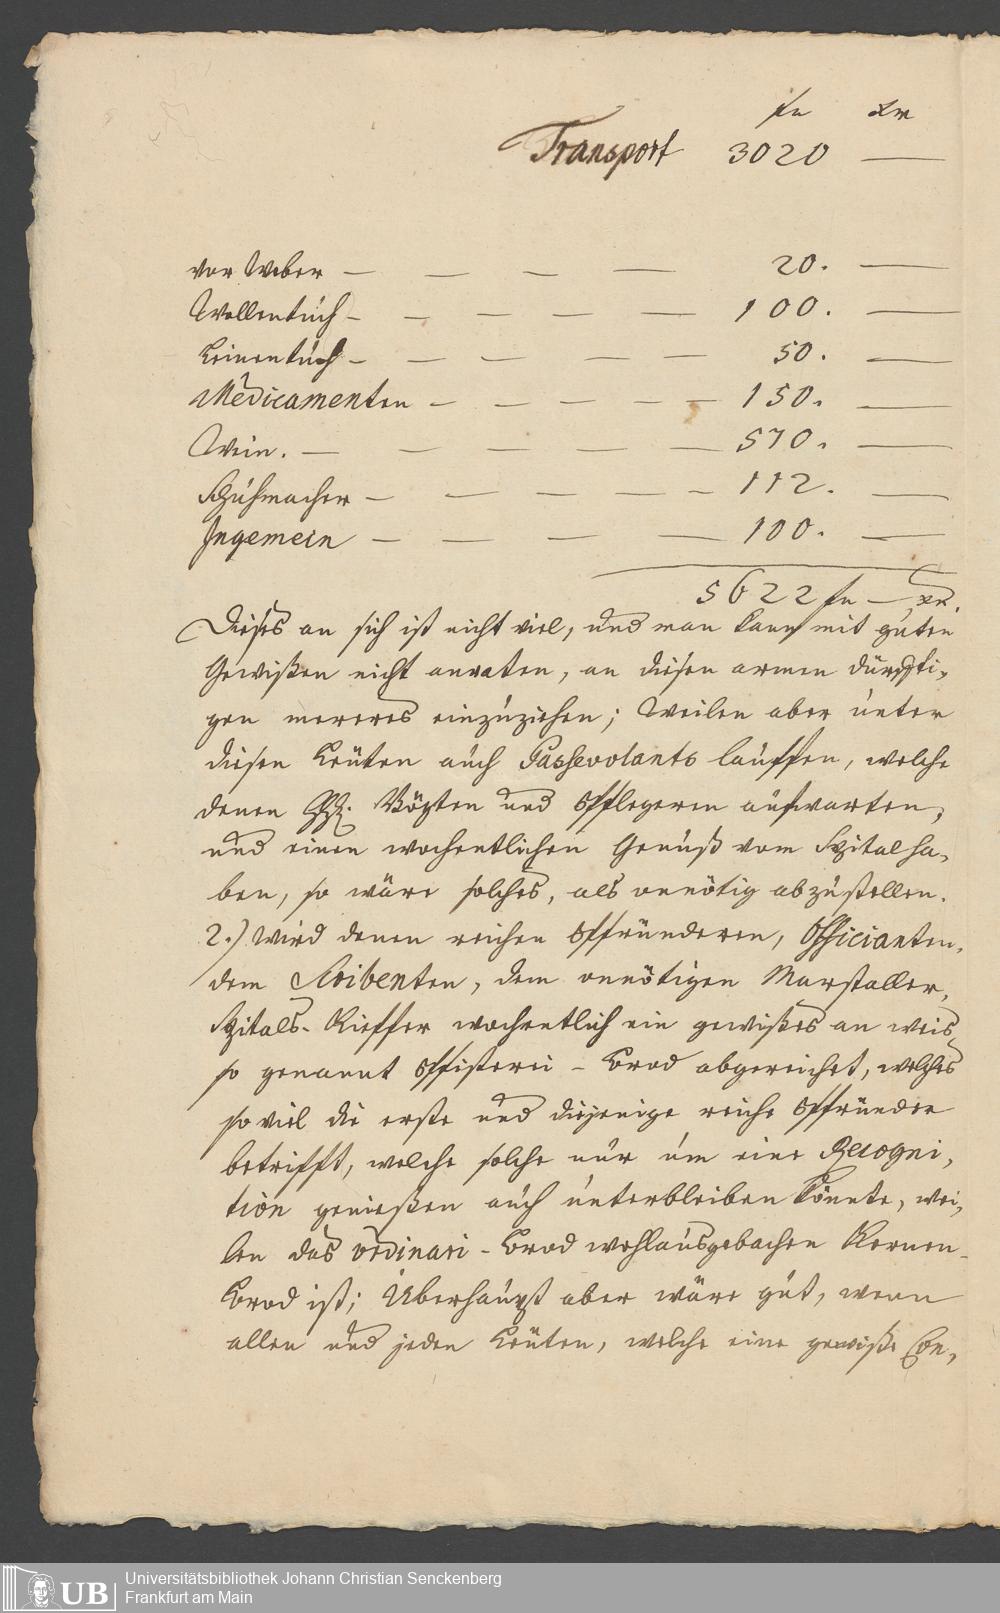 fn xr
Transport 3020 —
vor Weber — — — — 20. —
Wollentuch — — — — — 100. —
Leinentuch — — — — — 50. —
Medicamenten — — — — — 150. —
Wein. — — — — — 570. —
Schuhmacher — — — — — 112. —
Ingemein — — — — 100. —
5622 fn — xr.
Dieses an sich ist nicht viel, und man kann mit guten
Gewißen nicht anraten, an diesen armen dürfti-
gen mereres einzuziehen; Weilen aber unter
diesen Leuten auch Passevolants lauffen, welche
denen HH. Vögten und Pflegeren aufwarten,
und einen wochentlichen Genuß vom Spital ha-
ben, so wäre solches, als onnötig abzustellen.
2.) Wird denen reichen Pfründeren, Officianten,
dem Scribenten, dem onnötigen Marstaller,
Spitals-Kieffer wochentlich ein gewißes an weis
so genannt Pfisterei-Brod abgereichet, welches
so viel die erste und diejenige reiche Pfründer
betrifft, welche solche nur um eine Recogni-
tion genießen auch unterbleiben könnte, wei-
len das ordinari-Brod wohlausgebachen Kernen-
Brod ist; Überhaupt aber wäre gut, wenn
allen und jeden Leuten, welche eine gewiße Con-
UB Universitätsbibliothek Johann Christian Senckenberg
Frankfurt am Main